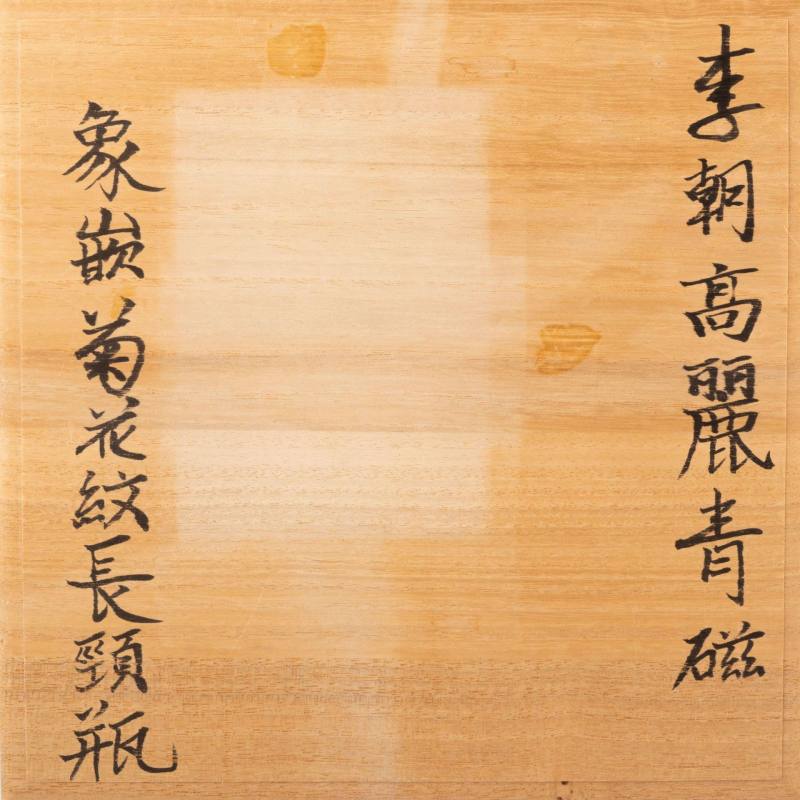 李朝高麗青磁
象嵌菊花紋長頸瓶